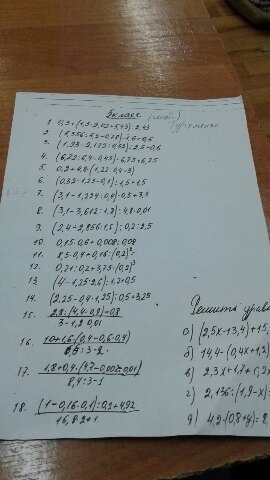 5 класс
1. 0,3+(4,2·2,02+5,43):2,43
2. (4,256:5,3-0,28):1,6-0,6
3. (1,23-2,135:0,32):2,5+0,6
4. (6,72:6,4-0,45)·6,75+6,25
5. 0,2+4,8·(1,22:0,4-3)
6. (0,32·1,25-0,1):1,5+1,5
7. (3,1-1,224:0,4)·0,5+3,5
8. (3,1-3,612:1,2):4,8·0,01
9. (2,4-2,256:1,5):0,2·2,5
10. 0,15·0,6+0,008:0,08
11. 8,5·0,4+0,16:(0,2)²
12. 0,21:0,2+3,75·(0,2)³
13. (4-1,25·2,6):1,2+0,5
14. (2,25-0,4·1,25):0,5+3,25
15. 2,8:(4,4-0,8)-0,8
3-1,2·0,01
16. 10+1,6·(0,4-0,6·0,4)
8,4:3-2
17. 1,8+0,4·(4,7-0,007:0,01)
8,4:3-1
18. (1-0,16·0,1):0,2+4,92
16,8·2+1
Решить
а) (2,5x-13,4)+15,
б) 14,4-(0,4x+1,2)
в) 2,3x+1,7+0,2x
г) 2,136:(1,9-x)=
д) 4,2·(0,8+y)=8,